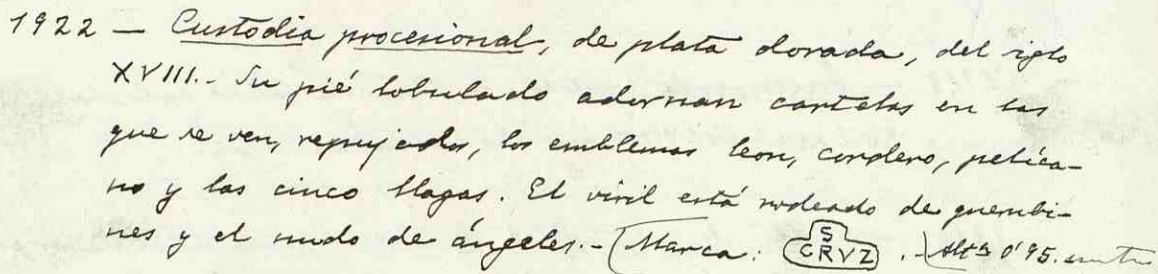 1922 — Custodia procesional, de plata dorada, del siglo
XVIII.- Su pié lobulado adornan cartelas en las
que se ven, repujados, los emblemas leon, cordero, pelíca-
no y las cinco llagas. El viril está rodeado de querubi-
nes y el nudo de ángeles.- (Marca: S CRVZ . ) Altª 0'95. metros